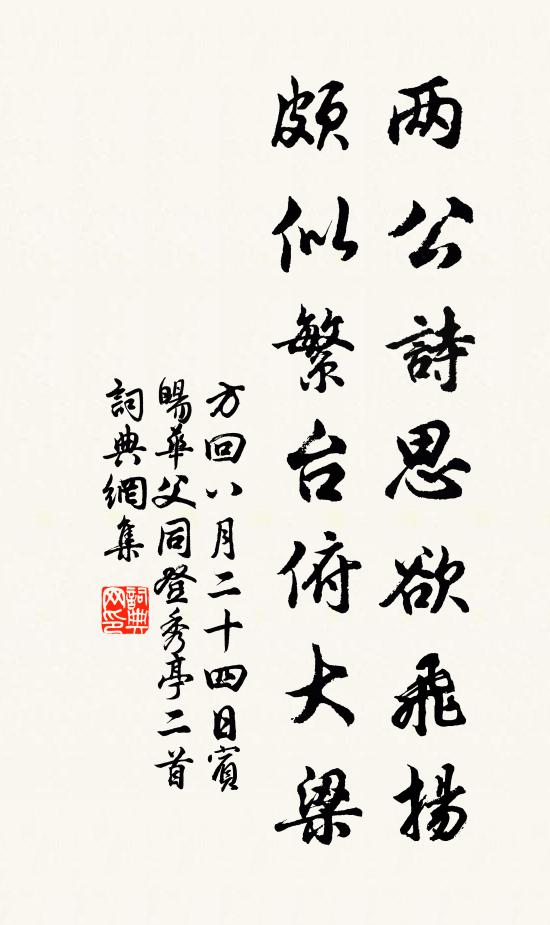 两公詩思欲飛揚
頗似繁台俯大梁
方回八月二十四日賓
暘華父同登秀亭二首
詞典網集
詞典网印